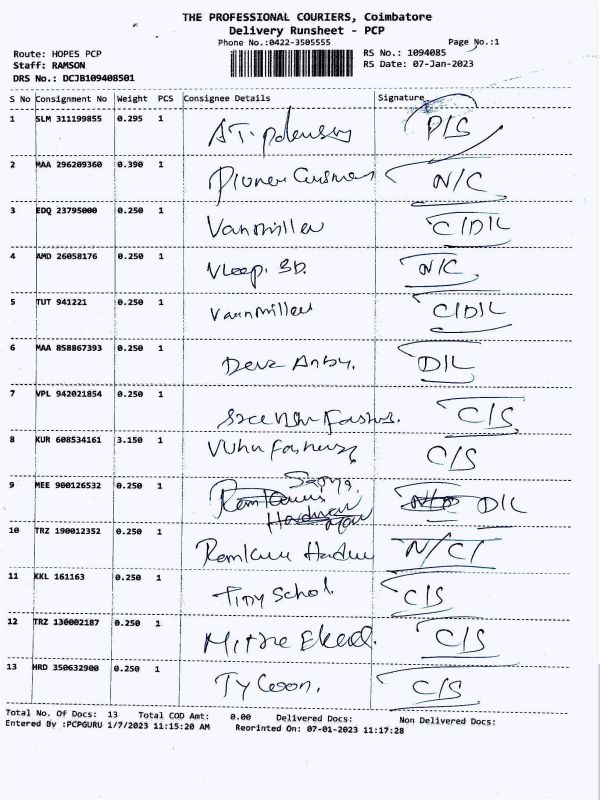 THE PROFESSIONAL COURIERS, Coimbatore
Delivery Runsheet - PCP
Phone No.:0422-3505555 Page No.:1
Route: HOPES PCP RS No.: 1094085
Staff: RAMSON RS Date: 07-Jan-2023
DRS No.: DCJB109408501
S No Consignment No Weight PCS Consignee Details Signature
1 SLM 311199855 0.295 1 P/S
2 MAA 296209360 0.390 1 N/C
3 EDQ 23795000 0.250 1 Vanmiller C/D/L
4 AMD 26058176 0.250 1 N/C
5 TUT 941221 0.250 1 Vanmiller C/D/L
6 MAA 858867393 0.250 1 D/L
7 VPL 942021854 0.250 1 C/S
8 KUR 608534161 3.150 1 C/S
9 MEE 900126532 0.250 1 D/L
10 TRZ 190012352 0.250 1 N/C
11 KKL 161163 0.250 1 Tiny School C/S
12 TRZ 130002187 0.250 1 C/S
13 HRD 350632900 0.250 1 Tycoon. C/S
Total No. Of Docs: 13 Total COD Amt: 0.00 Delivered Docs: Non Delivered Docs:
Entered By :PCPGURU 1/7/2023 11:15:20 AM Reprinted On: 07-01-2023 11:17:28